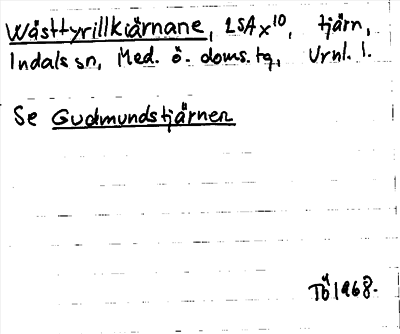 Wästtyrillkiärnane, LSA x 10, tjärn,
Indals sn, Med. ö. doms. tg, Vrnl. l.
Se Gudmundstjärnen
TÖ 1968.